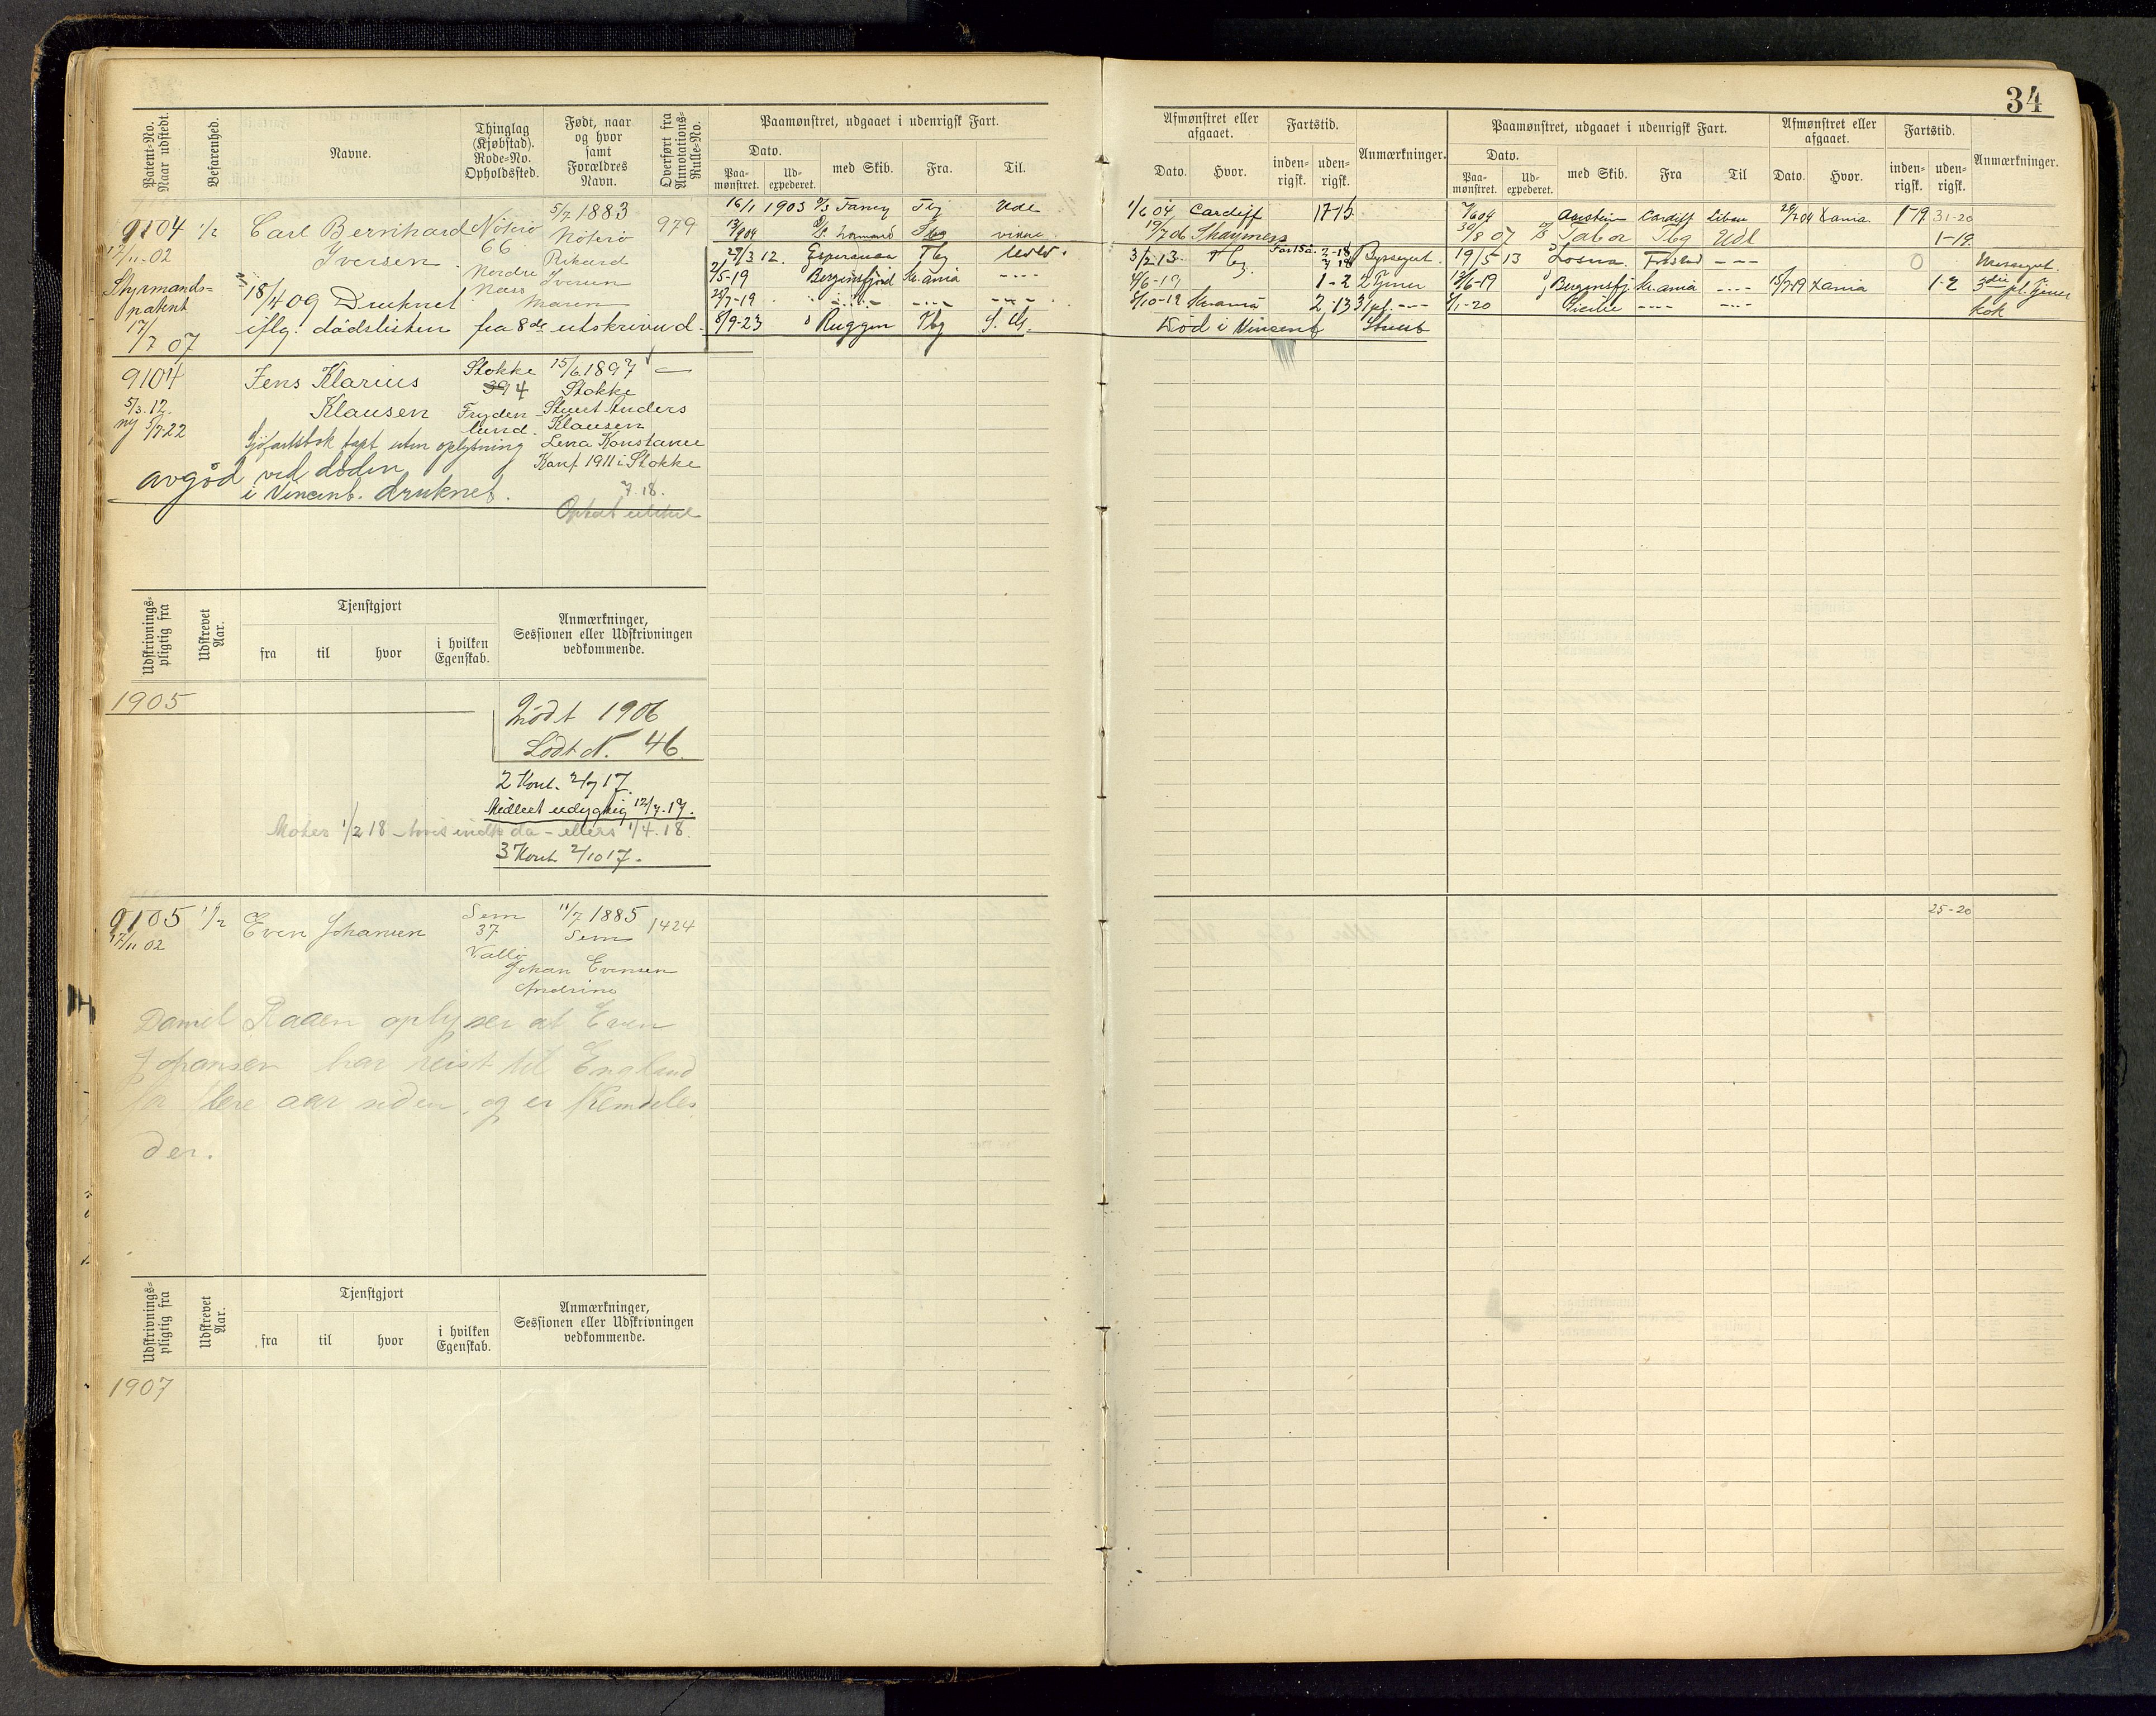 34
Patent-No. Naar udstedt.
Befarenhed.
Navne.
Thinglag (Kjøbstad). Rode-No. Opholdssted.
Født, naar og hvor samt Forældres Navn.
Overført fra Annotations-Rulle-No.
Paamønstret, udgaaet i udenrigsk Fart.
Dato.
Paa-mønstret.
Ud-expederet.
med Skib.
Fra.
Til.
Afmønstret eller afgaaet.
Dato.
Hvor.
Fartstid.
inden-rigsk.
uden-rigsk.
Anmærkninger.
Paamønstret, udgaaet i udenrigsk Fart.
Dato.
Paa-mønstret.
Ud-expederet.
med Skib.
Fra
Til
Afmønstret eller afgaaet.
Dato.
Hvor.
Fartstid.
inden-rigsk.
uden-rigsk.
Anmærkninger.
9104 1/2 Carl Bernhard Nøterø 5/7 1883 979
17/11-02 Iversen 66 Nøterø
Nordre Rikard
Næss Iversen
Maren
Styrmands-
patent
17/7 07
18/4 09 Druknet
iflg. dødslisten fra 8de utskrivnd.
16/1 1903 Fancy Tbg Udl
1/6 04 Cardiff 17-15
7/6 04 Cardiff Libau Xania 1-19 31-20
19/7 06
30/8 07 Tabor Tbg Udl 1-19
27/3 12. Esperanza Tbg
3/2 13. Tbg 2-18 Dyssegut.
19/5 13 Losna Fr.stad --- 0 Messegut.
2/5-19 Bergensfjord Kr.ania ----
4/6-19 1-2 2 Tjener
12/6-19 Bergensfj. Kr.ania ---- 15/7-19 Xania 1-2
---- ---- ----
5/10-19 Kr.ania 2,13
1/1-20 ---- ---- kok
8/9-23 Ruggen Tbg
Død i Vincent Street
9104 Jens Klarius Stokke 15/6 1897
5/3.12. Klausen 394 Stokke
ny 5/7-22 Fryden- Stuert Anders
lund. Klausen
Sjøfartsbok tapt uten oplysning Lena Konstance
Konf. 1911 i Stokke
avgåd ved døden
i Vincent. druknet.
7.18.
Udskrivnings-pligtig fra
Udskrevet Aar.
Tjenstgjort
fra
til
hvor
i hvilken Egenskab.
Anmærkninger, Sessionen eller Udskrivningen vedkommende.
1905
Mødt 1906
Lodt N. 46
2 Kont. 2/7 17.
Midlert. udygtig 12/7.17.
Møter 1/2 18 - hvis indk. da - ellers 1/4.18.
3 Kont. 2/10 17.
9105 1/2 Even Johansen Sem 11/7 1885 1424
17/11 02 37 Sem
Vallø
Johan Evensen
Andrine
25-20
Daniel Raaen oplyser at Even
Johansen har reist til England
for flere aar siden, og er fremdeles
der.
Udskrivnings-pligtig fra
Udskrevet Aar.
Tjenstgjort
fra
til
hvor
i hvilken Egenskab.
Anmærkninger, Sessionen eller Udskrivningen vedkommende.
1907